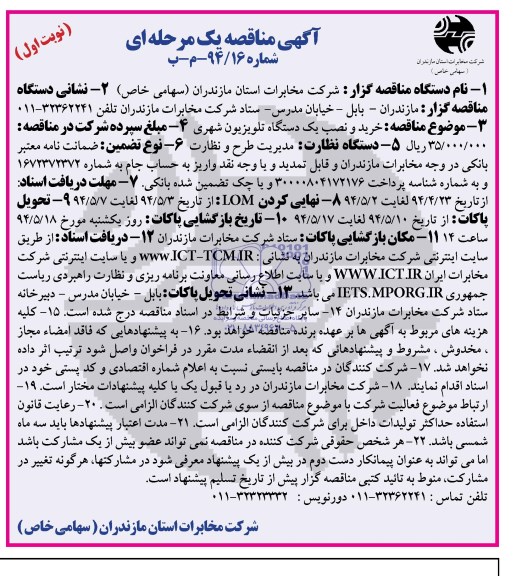 (نوبت اول)
آگهی مناقصه یک مرحله ای
شماره ۹۴/۱۶-م-ب
شرکت مخابرات استان مازندران
( سهامی خاص )
۱- نام دستگاه مناقصه گزار : شرکت مخابرات استان مازندران (سهامی خاص) ۲- نشانی دستگاه
مناقصه گزار : مازندران - بابل - خیابان مدرس- ستاد شرکت مخابرات مازندران تلفن ۳۲۳۶۲۲۴۱-۰۱۱
۳- موضوع مناقصه : خرید و نصب یک دستگاه تلویزیون شهری ۴- مبلغ سپرده شرکت در مناقصه :
۳۵/۰۰۰/۰۰۰ ریال ۵- دستگاه نظارت : مدیریت طرح و نظارت ۶- نوع تضمین : ضمانت نامه معتبر
بانکی در وجه مخابرات مازندران و قابل تمدید و یا وجه نقد واریز به حساب جام به شماره ۱۶۷۲۳۷۲۳۷۲
و به شماره شناسه پرداخت ۳۰۰۰۰۸۰۴۱۷۲۱۷۶ و یا چک تضمین شده بانکی. ۷- مهلت دریافت اسناد :
از تاریخ ۹۴/۴/۲۳ لغایت ۹۴/۵/۲ ۸- نهایی کردن LOM : از تاریخ ۹۴/۵/۳ لغایت ۹۴/۵/۷ ۹- تحویل
پاکات : از تاریخ ۹۴/۵/۱۰ لغایت ۹۴/۵/۱۷ ۱۰- تاریخ بازگشایی پاکات : روز یکشنبه مورخ ۹۴/۵/۱۸
ساعت ۱۴ ۱۱- مکان بازگشایی پاکات : ستاد شرکت مخابرات مازندران ۱۲- دریافت اسناد : از طریق
سایت اینترنتی شرکت مخابرات مازندران به نشانی : www.ICT-TCM.IR و یا سایت اینترنتی شرکت
مخابرات ایران WWW.ICT.IR و یا سایت اطلاع رسانی معاونت برنامه ریزی و نظارت راهبردی ریاست
جمهوری IETS.MPORG.IR می باشد. ۱۳- نشانی تحویل پاکات : بابل - خیابان مدرس - دبیرخانه
ستاد شرکت مخابرات مازندران ۱۴- سایر جزئیات و شرایط در اسناد مناقصه درج شده است. ۱۵- کلیه
هزینه های مربوط به آگهی ها بر عهده برنده مناقصه خواهد بود. ۱۶- به پیشنهادهایی که فاقد امضاء مجاز
، مخدوش ، مشروط و پیشنهادهائی که بعد از انقضاء مدت مقرر در فراخوان واصل شود ترتیب اثر داده
نخواهد شد. ۱۷- شرکت کنندگان در مناقصه بایستی نسبت به اعلام شماره اقتصادی و کد پستی خود در
اسناد اقدام نمایند. ۱۸- شرکت مخابرات مازندران در رد یا قبول یک یا کلیه پیشنهادات مختار است. ۱۹-
ارتباط موضوع فعالیت شرکت با موضوع مناقصه از سوی شرکت کنندگان الزامی است . ۲۰- رعایت قانون
استفاده حداکثر تولیدات داخل برای شرکت کنندگان الزامی است. ۲۱- مدت اعتبار پیشنهادها باید سه ماه
شمسی باشد. ۲۲- هر شخص حقوقی شرکت کننده در مناقصه نمی تواند عضو بیش از یک مشارکت باشد
اما می تواند به عنوان پیمانکار دست دوم در بیش از یک پیشنهاد معرفی شود در مشارکتها، هرگونه تغییر در
مشارکت، منوط به تائید کتبی مناقصه گزار پیش از تاریخ تسلیم پیشنهاد است.
تلفن تماس : ۳۲۳۶۲۲۴۱-۰۱۱ دورنویس : ۳۲۳۲۳۳۳۲-۰۱۱
شرکت مخابرات استان مازندران ( سهامی خاص )